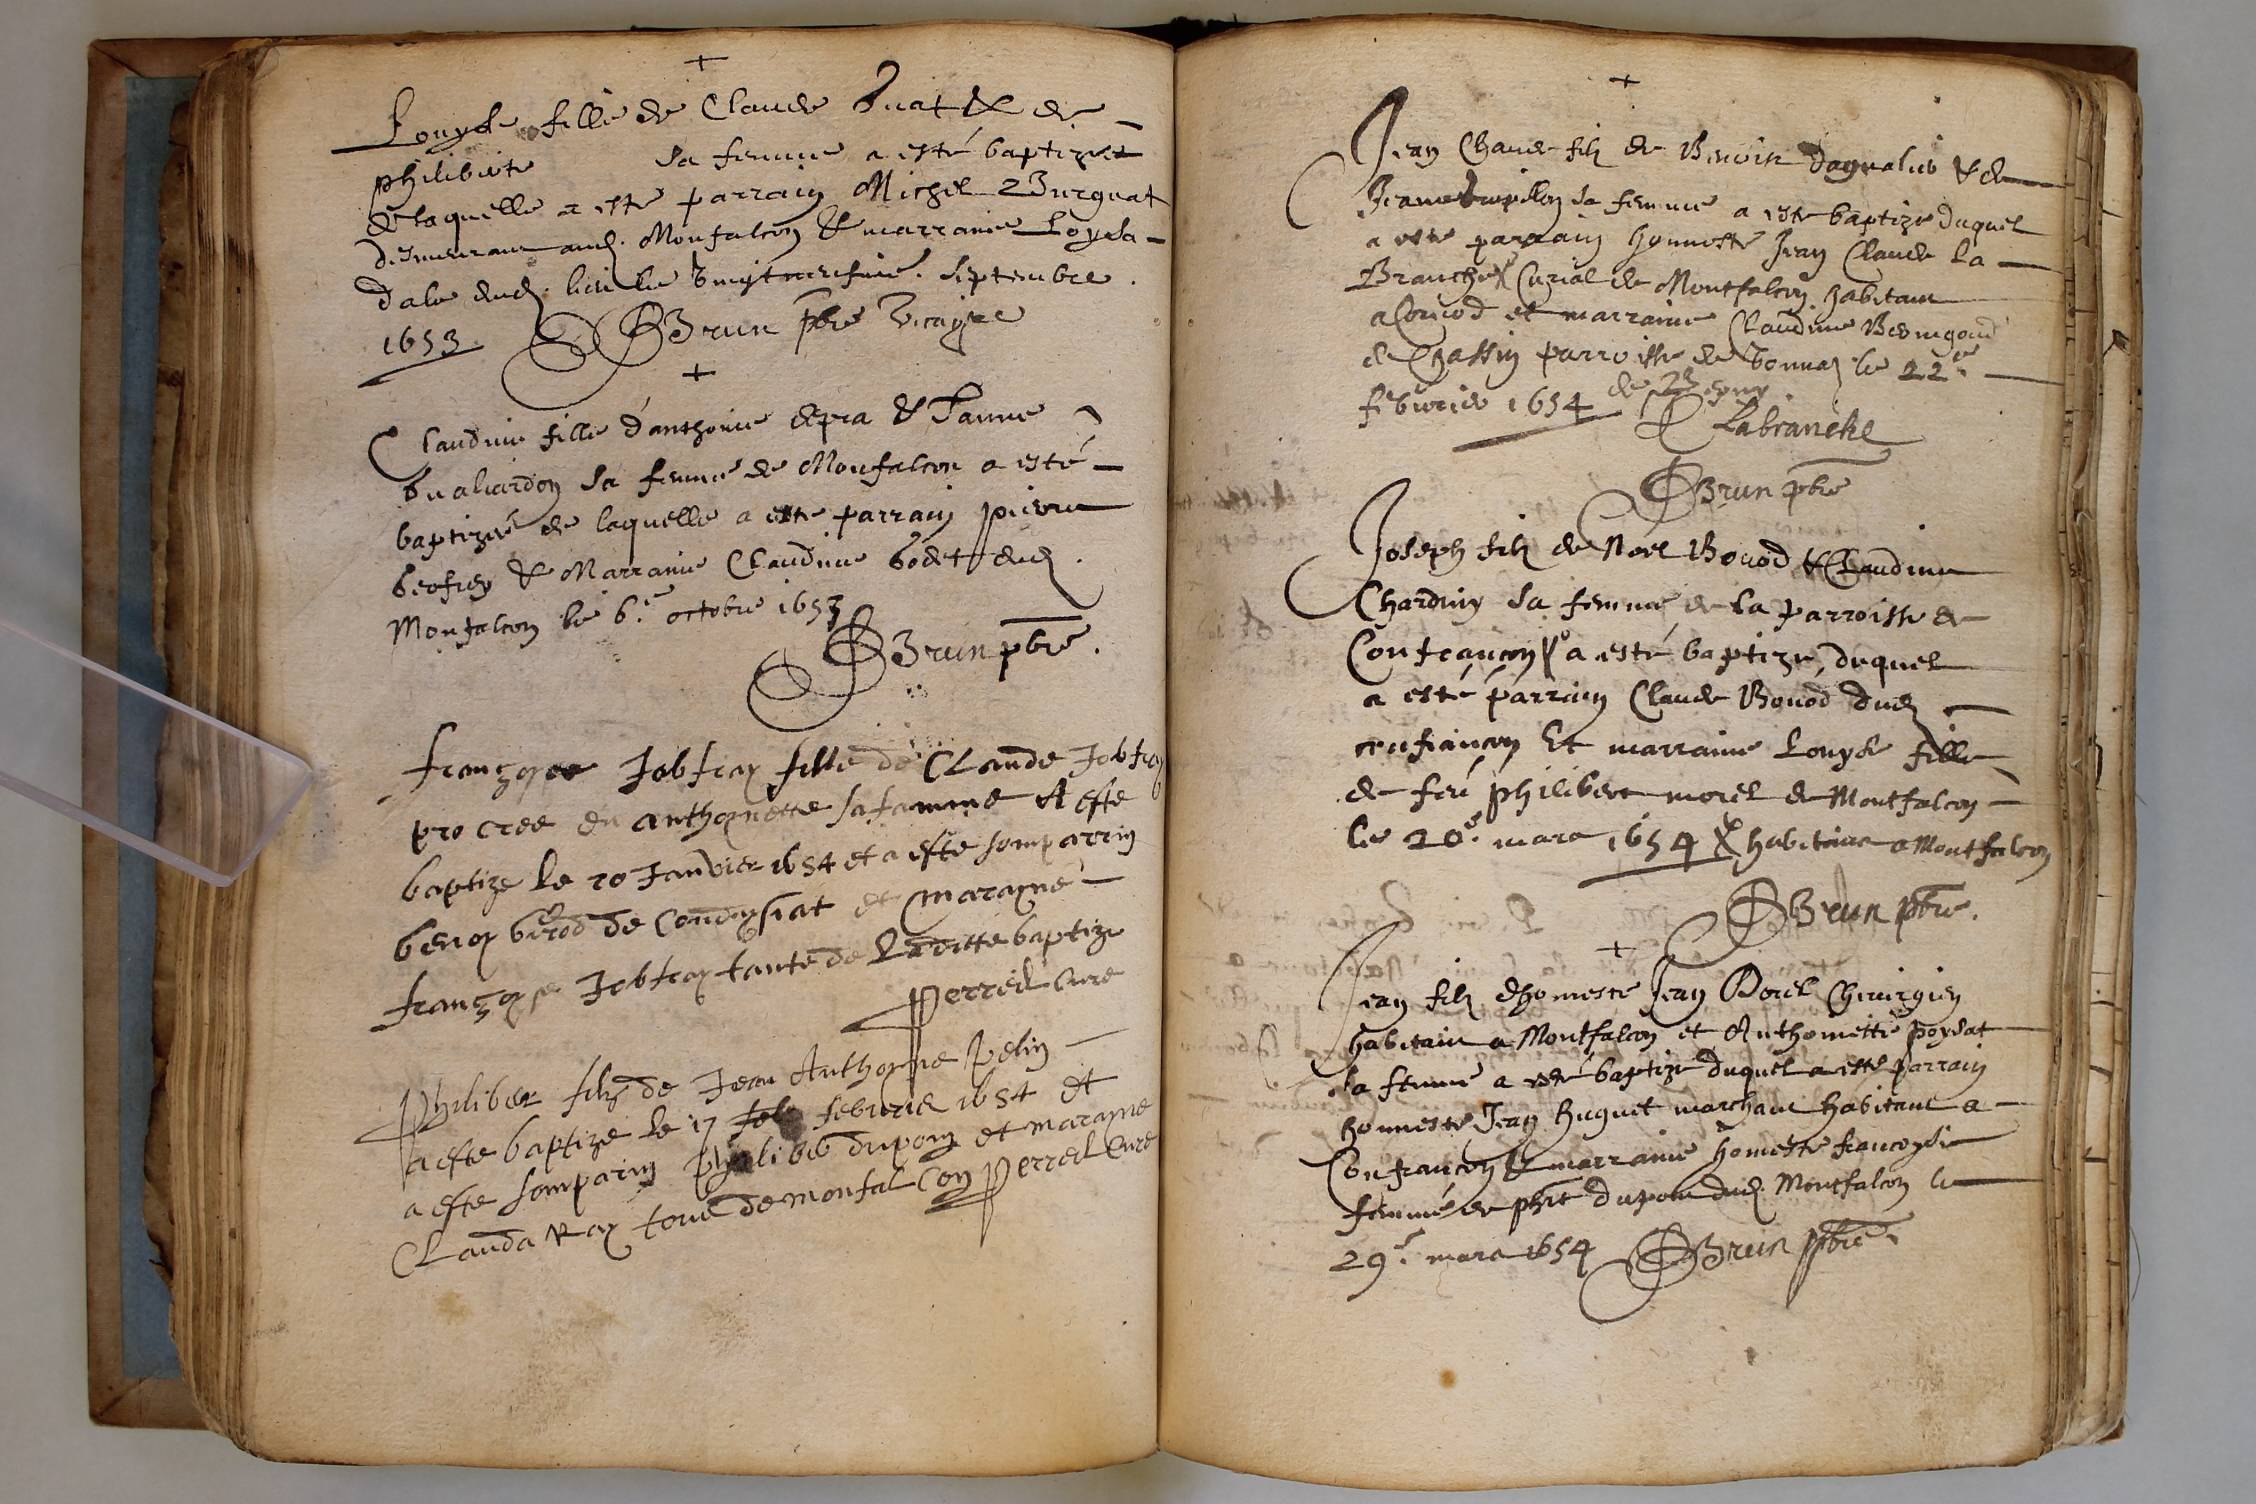 +
Louyse fille de Claude Buat & de
philiberte sa femme a esté baptizée
de laquelle a esté parrain Michel
demeurant aud. Monfalcon & marraine Loysa
dud. lieu le septembre
1653. Brun pbre Vicayre
+
Claudine fille d'anthoine depra & Janne
sa femme de Monfalcon a esté
baptizée de laquelle a esté parrain pierre
& Marraine Claudine dud.
Monfalcon le 6.e octobre 1653
Brun pbre.
françoyse Jobfray fille de CLaude Jobfray
procree en anthoynette sa famme A este
baptize le 20 Janvier 1654 et a este somparrin
benoy de Condeysiat et marayne
françoyse Jobfray tante de Laditte baptize
perred cure
Philiber filz de Jean Anthoyne
a este baptize le 17 febvrier 1654 et
a este somparin dupony et marayne
CLauda Ray tous de monfalcon Perred Cure
+
Jean Chaude filz de Benoist & de
Jeane sa femme a esté baptize duquel
a esté parrain honneste Jean Claude la
Branche Curial de Montfalcon habitant
a et marraine Claudine
de Chassin parroisse de le 22.e
febvrier 1654
Labranche
Brun pbre
Joseph filz de Noel Bouod & Claudine
Chardiny sa femme de la parroisse de
Confrançon a esté baptize, duquel
a esté parrain Claude Bouod dud.
confrançon Et marraine Louyse fille
de feu philibert morel de Montfalcon
le 20.e mars 1654 habitans a Montfalcon
Brun pbre.
+
Jean filz dhonneste Jean Borel Chirurgien
habitain a Montfalcon et Anthoinette poysat
sa femme a esté baptize duquel a esté parrain
honneste Jean Huguet marchant habitant a
Confrançon & marraine honneste françoyse
femme de phit dupont dud. Montfalcon le
29.e mars 1654 Brun pbre.